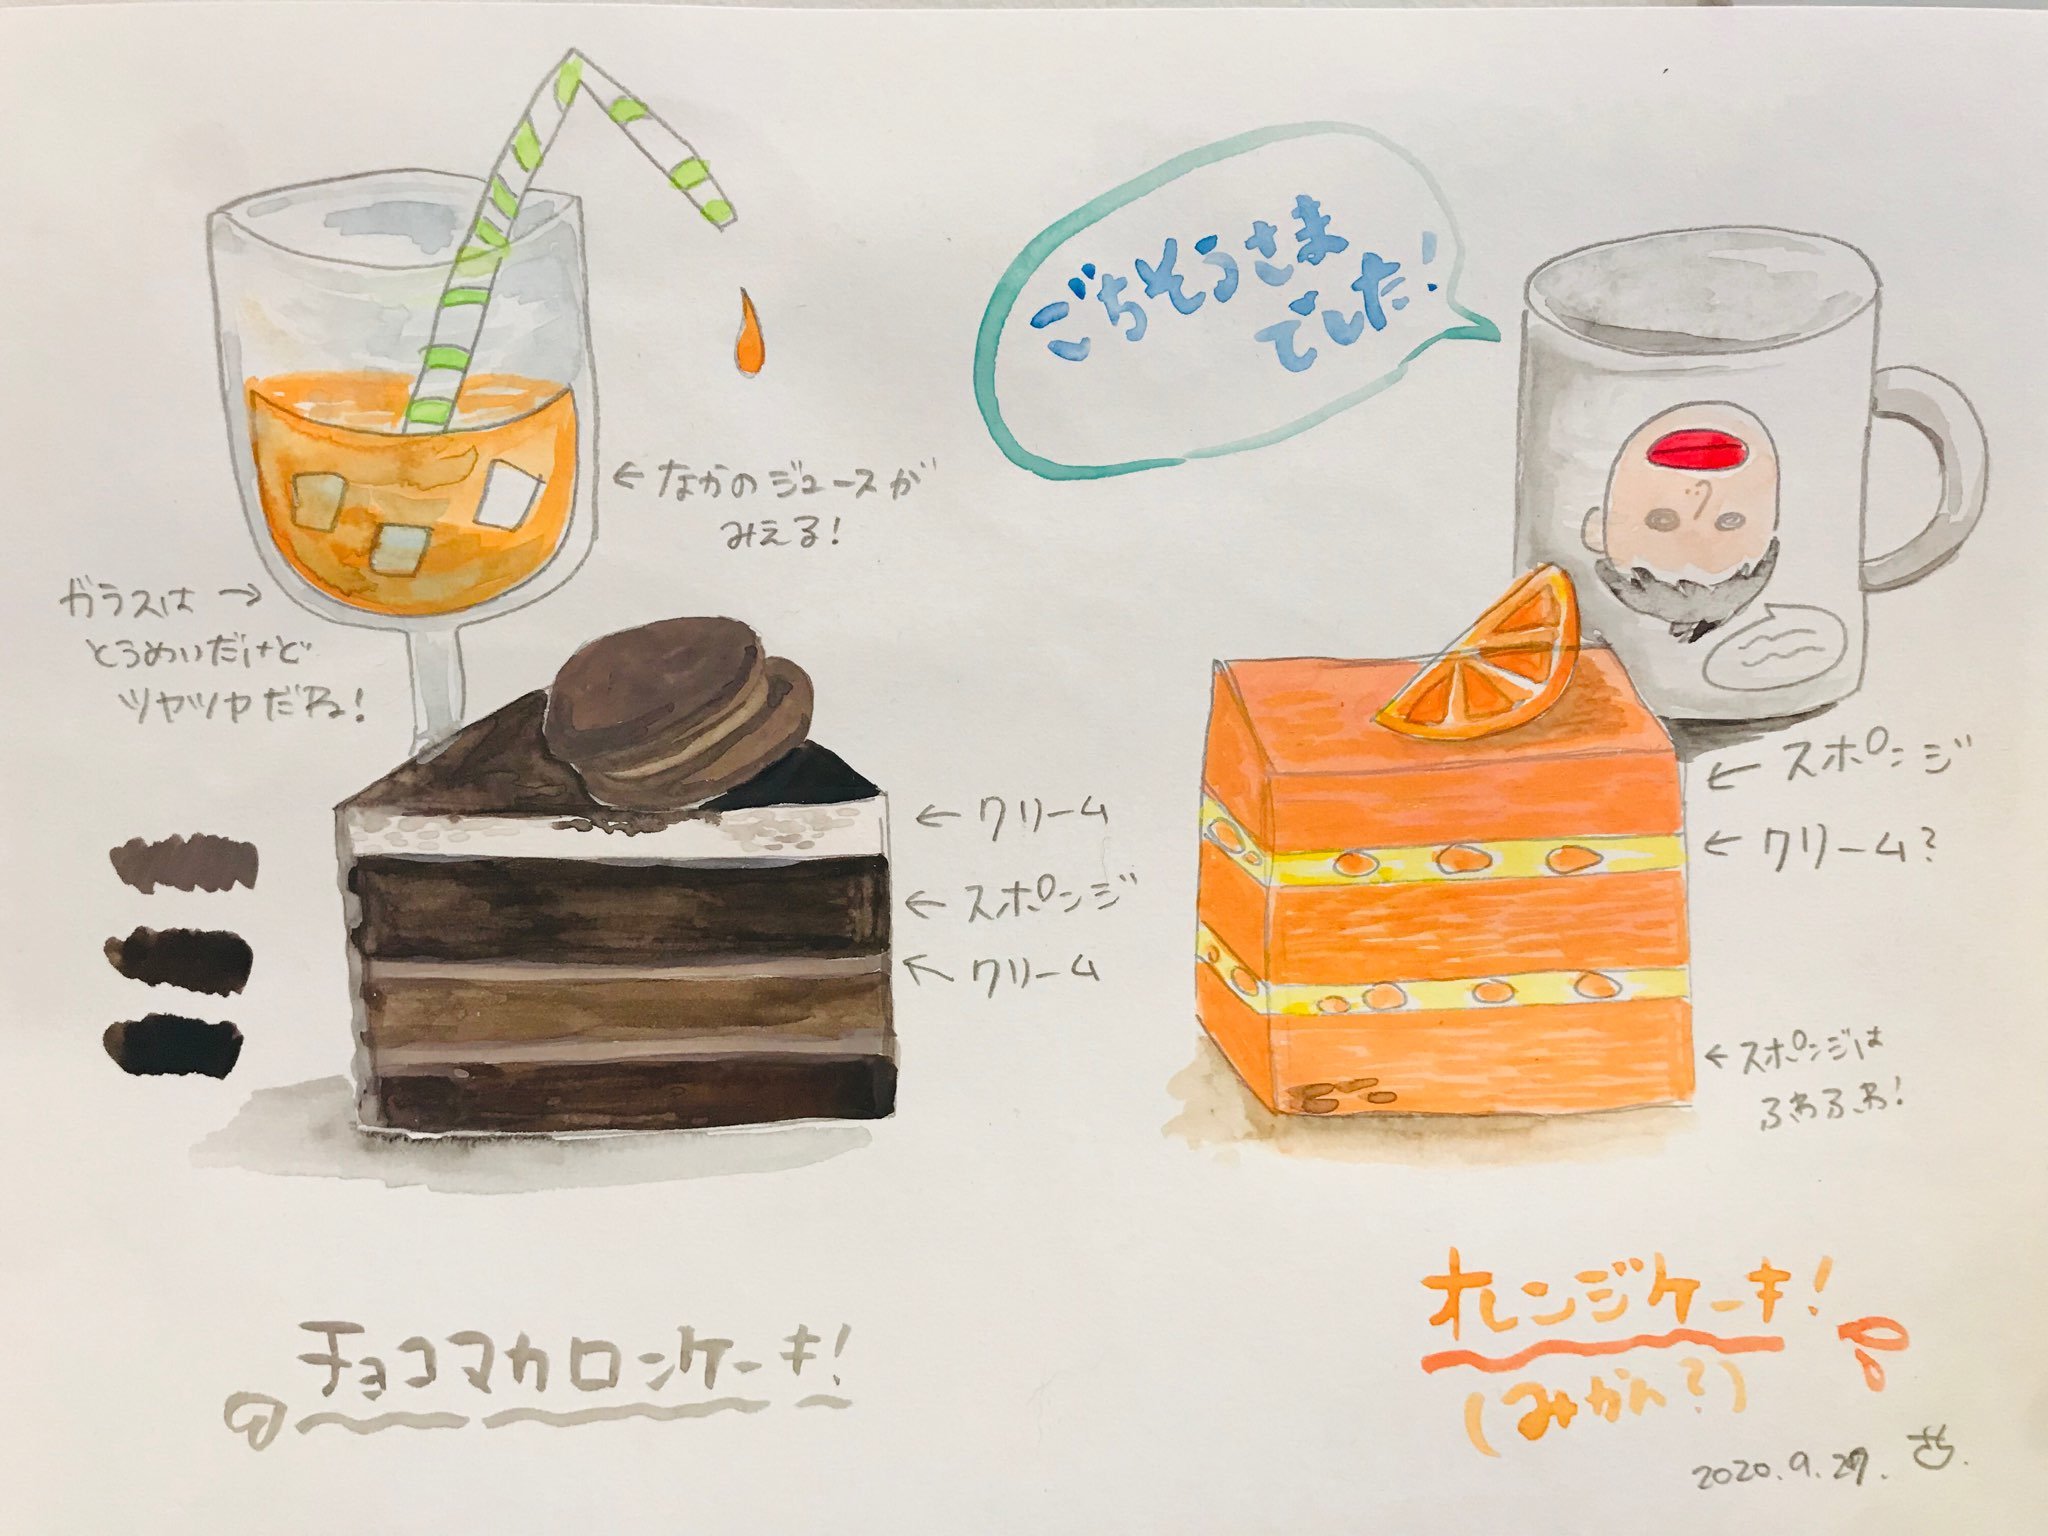 ごちそうさま
でした!
← なかのジュースが
みえる!
ガラスは →
とうめいだけど
ツヤツヤだね!
← クリーム
← スポンジ
← クリーム
← スポンジ
← クリーム?
← スポンジは
ふわふわ!
チョコマカロンケーキ!
オレンジケーキ!
(みかん?)
2020.9.27.